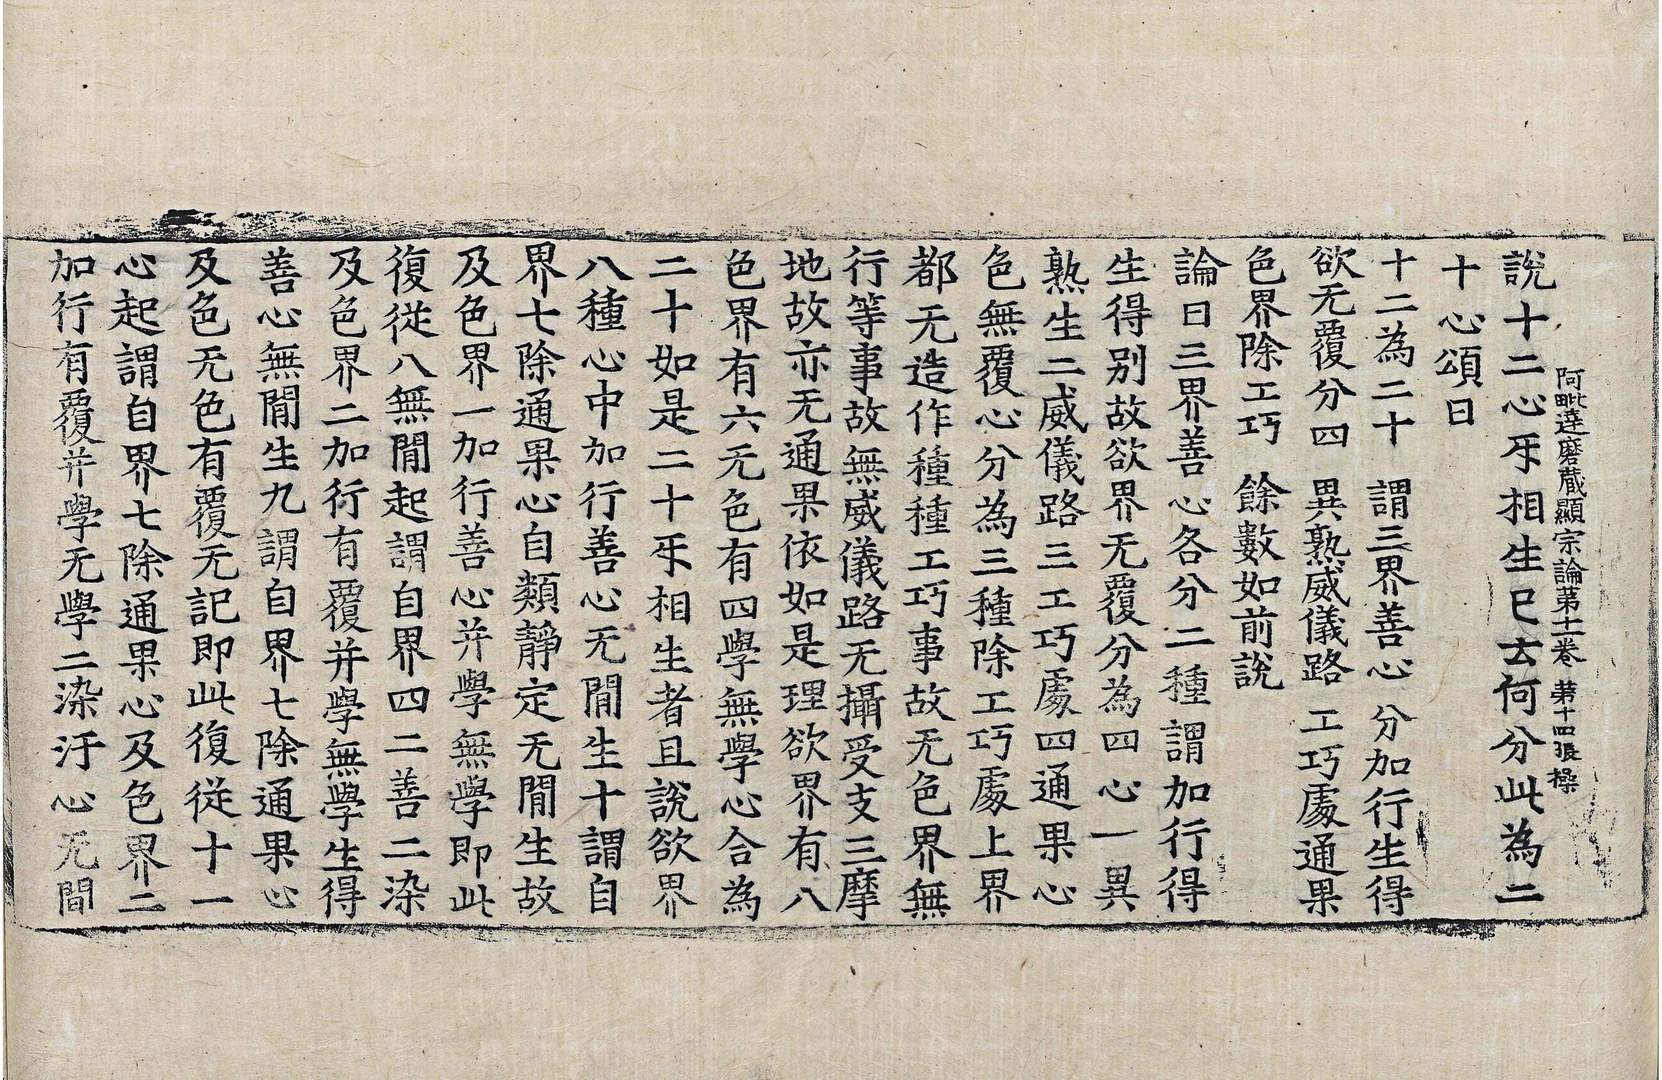 阿毗達磨藏顯宗論第十一卷 第十四張 操
說十二心㸦相生已云何分此為二
十心頌曰
十二為二十 謂三界善心 分加行生得
欲无覆分四 異熟威儀路 工巧處通果
色界除工巧 餘數如前說
論曰三界善心各分二種謂加行得
生得別故欲界无覆分為四心一異
熟生二威儀路三工巧處四通果心
色無覆心分為三種除工巧處上界
都无造作種種工巧事故无色界無
行等事故無威儀路无攝受支三摩
地故亦无通果依如是理欲界有八
色界有六无色有四學無學心合為
二十如是二十㸦相生者且說欲界
八種心中加行善心无間生十謂自
界七除通果心自類靜定无間生故
及色界一加行善心并學無學即此
復從八無間起謂自界四二善二染
及色界二加行有覆并學無學生得
善心無間生九謂自界七除通果心
及色无色有覆无記即此復從十一
心起謂自界七除通果心及色界二
加行有覆并學无學二染汙心无間